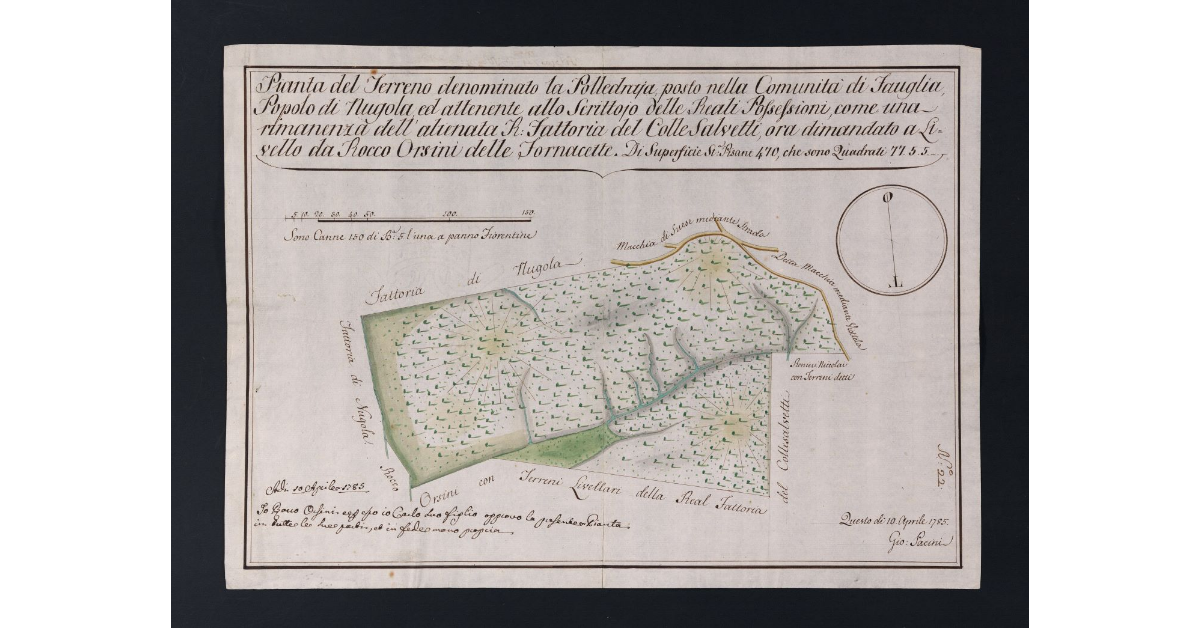 Pianta del Terreno denominato la Polledraja, posto nella Comunità di Fauglia,
Popolo di Nugola ed attenente allo Scrittojo delle Reali Possessioni, come una
rimanenza dell'alienata R: Fattoria del Colle Salvetti, ora dimandato a Li=
vello da Rocco Orsini delle Fornacette. Di Superficie St: Pisane 470, che sono Quadrati 77 5 5
5 10 20 30 40 50 100 150
Sono Canne 150 di B: 5 l'una a panno Fiorentine
O
T
Macchia di Suese mediante Strada
Detta Macchia mediante Strada
Fattoria di Nugola
Fattoria di Nugola
con Terreni detti
del Collesalvetti
Rocco Orsini con Terreni Livellari della Real Fattoria
N° 22
Adi 10 Aprile 1785
Io Rocco Orsini e per esso io Carlo suo figlio approvo la presente Pianta
in tutte le sue parti, ed in fede mano propria
Questo dì 10. Aprile 1785.
Gio: Pacini